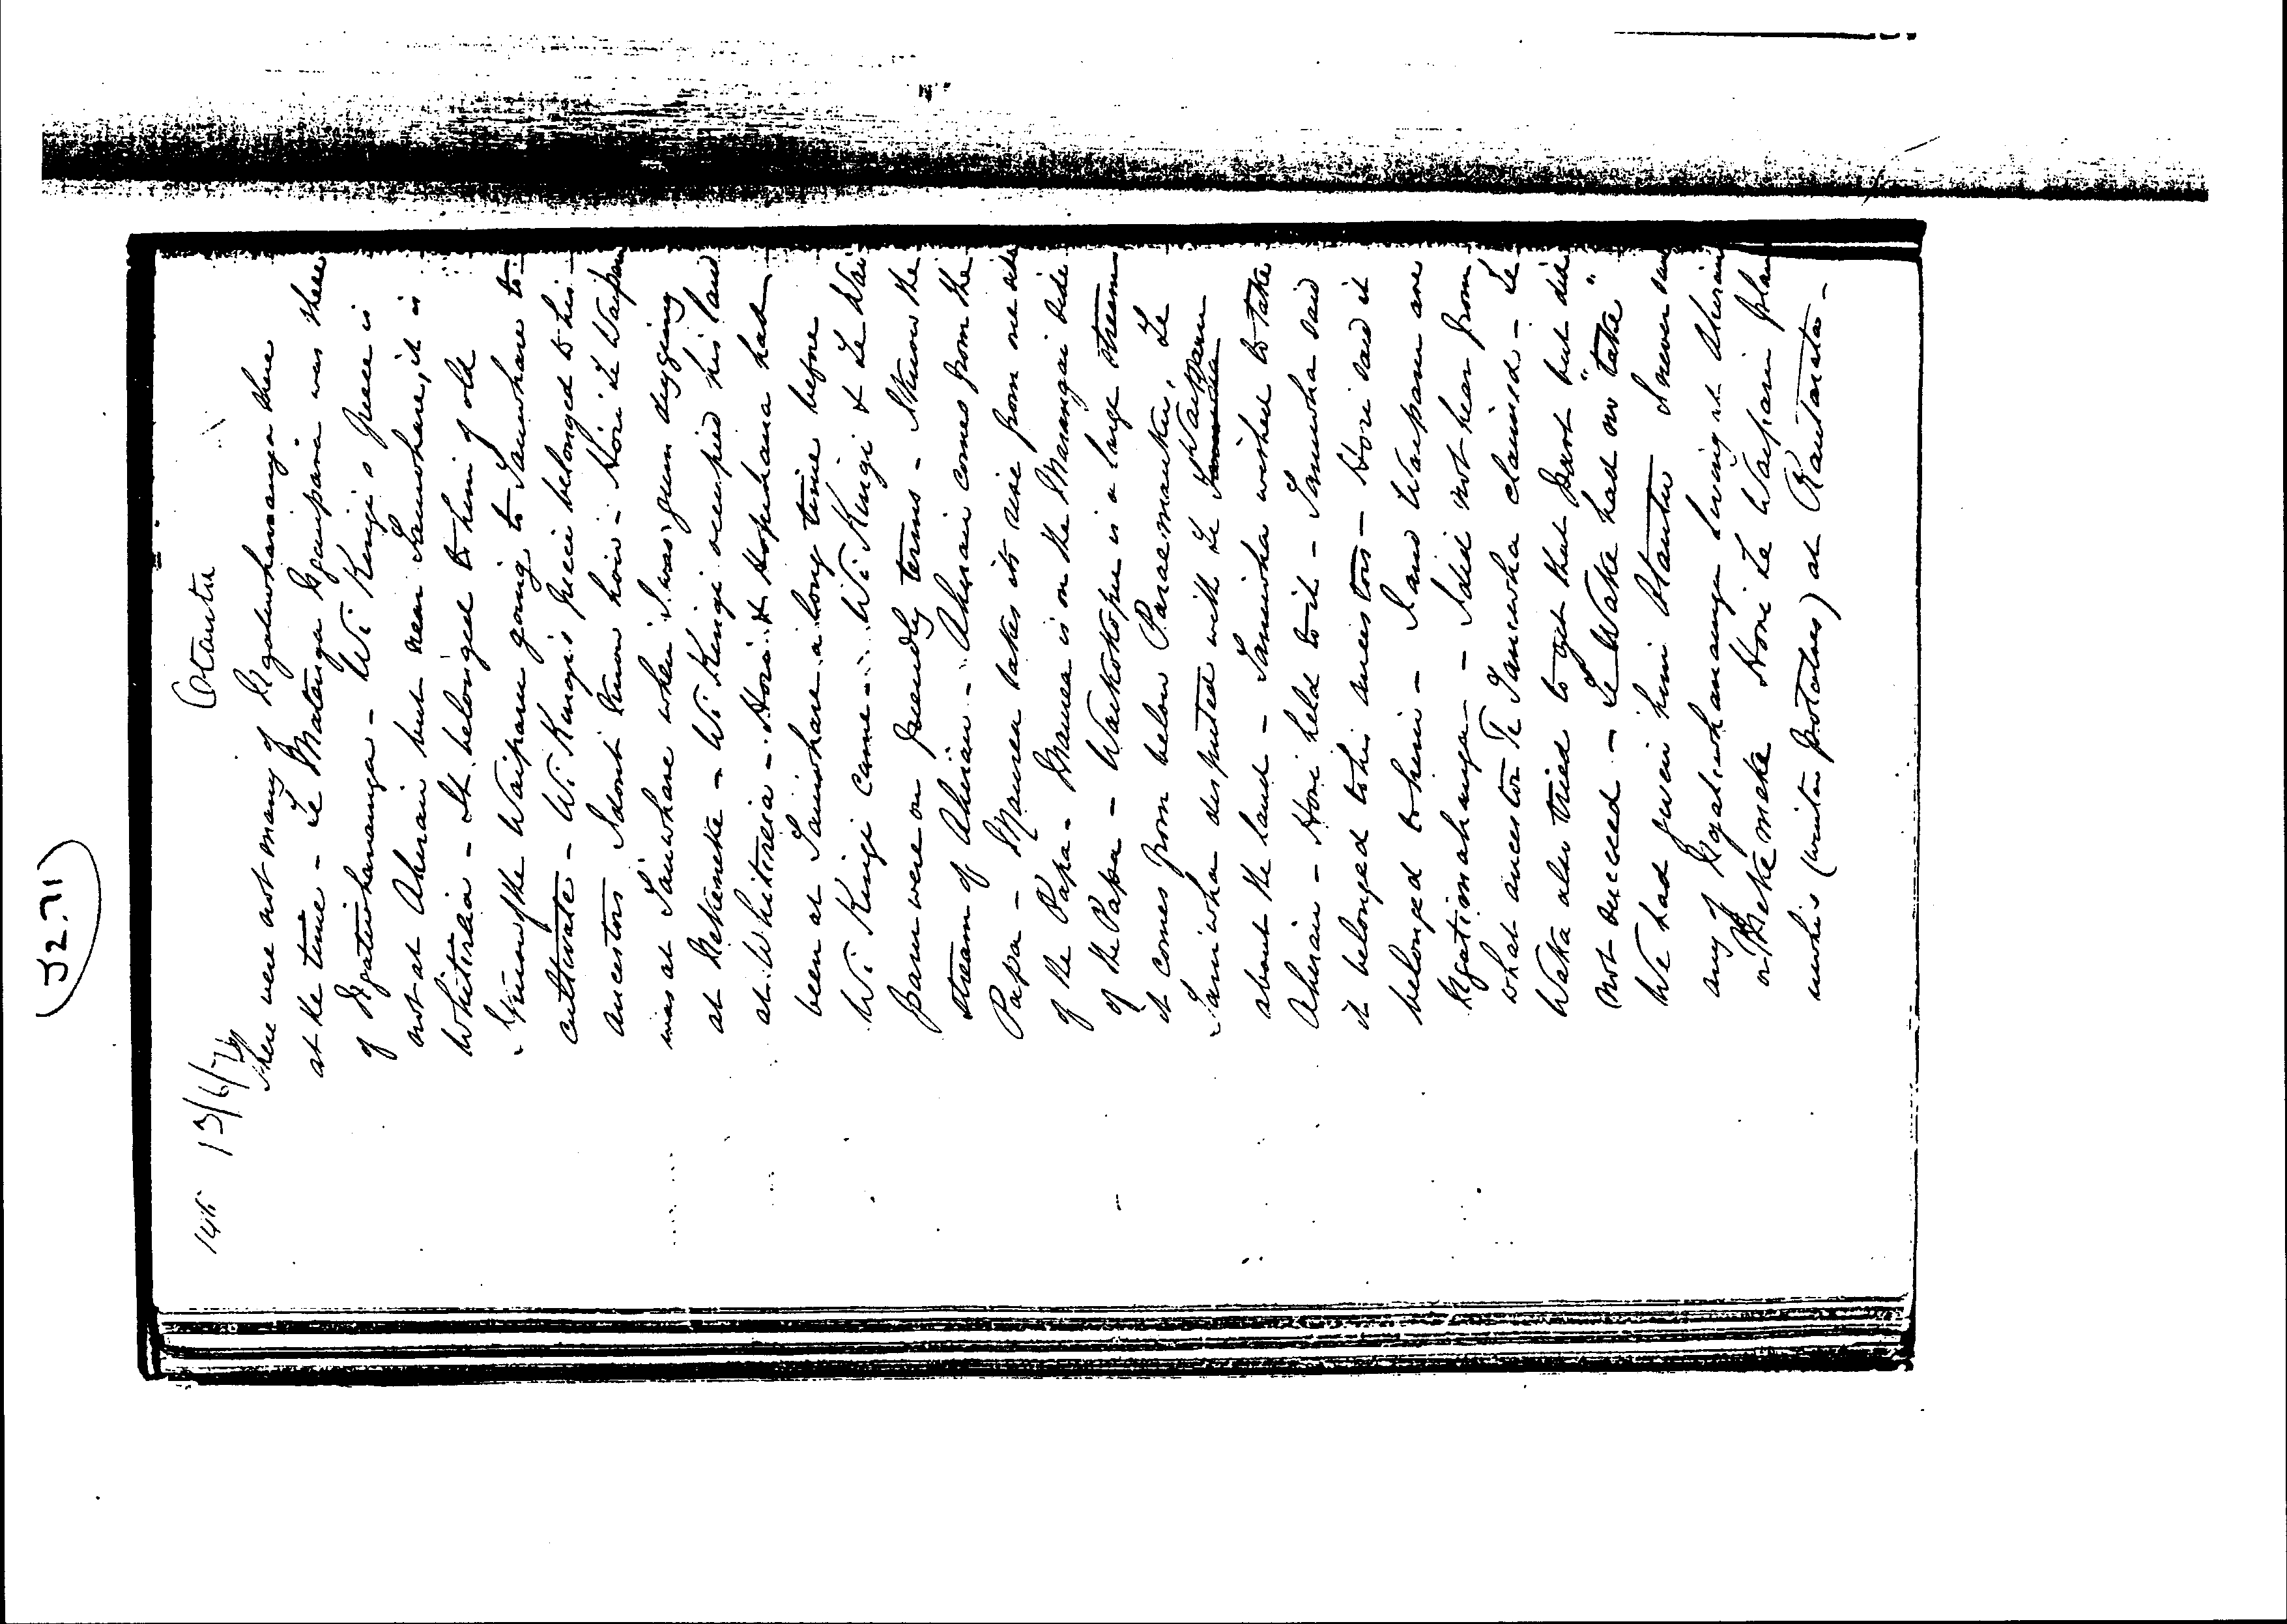 (J2.71)
146 13/6/76
Otautu
There were not many of Ngatiwhanaunga there
at the time - Te Matenga Ngauipaia was there
of Ngatiwhanaunga - Wi Kingi's piece is
not at Aherau but near Tauwhare, it is
Whitireia - It belonged to him of old
I knew of the Waiparu going to Tauwhare to
cultivate - Wi Kingi's piece belonged to his
ancestors I dont know how - Hori te Waiparu
was at Tauwhare when I was gum digging
at Meremere - Wi Kingi occupied his land
at Whitireia - Hori & Hopihana had
been at Tauwhare a long time before
Wi Kingi came - Wi Kingi & Te Wai
paru were on friendly terms - I know the
stream of Aherau - Aherau comes from the
Papa - Maurea takes its rise from one side
of the Papa - Maurea is on the Marangai side
of the Papa - Waikokopu is a large stream
it comes from below Paraemanku, Te
Taniwha disputed with Te Waiparu
about the land - Taniwha wished to take
Aherau - Hori held to it - Taniwha said
it belonged to his ancestors - Hori said it
belonged to him - I and Waiparu are
Ngatimahanga - I did not hear from
what ancestor Te Taniwha claimed - Te
Waka also tried to get that part but did
not succeed - Te Waka had no "take"
We had given him Otautu I never saw
any of Ngatiwhanaunga living at Aherau
or Mekemeke Hori Te Waiparu plan
(winter potatoes) at Rautarata -